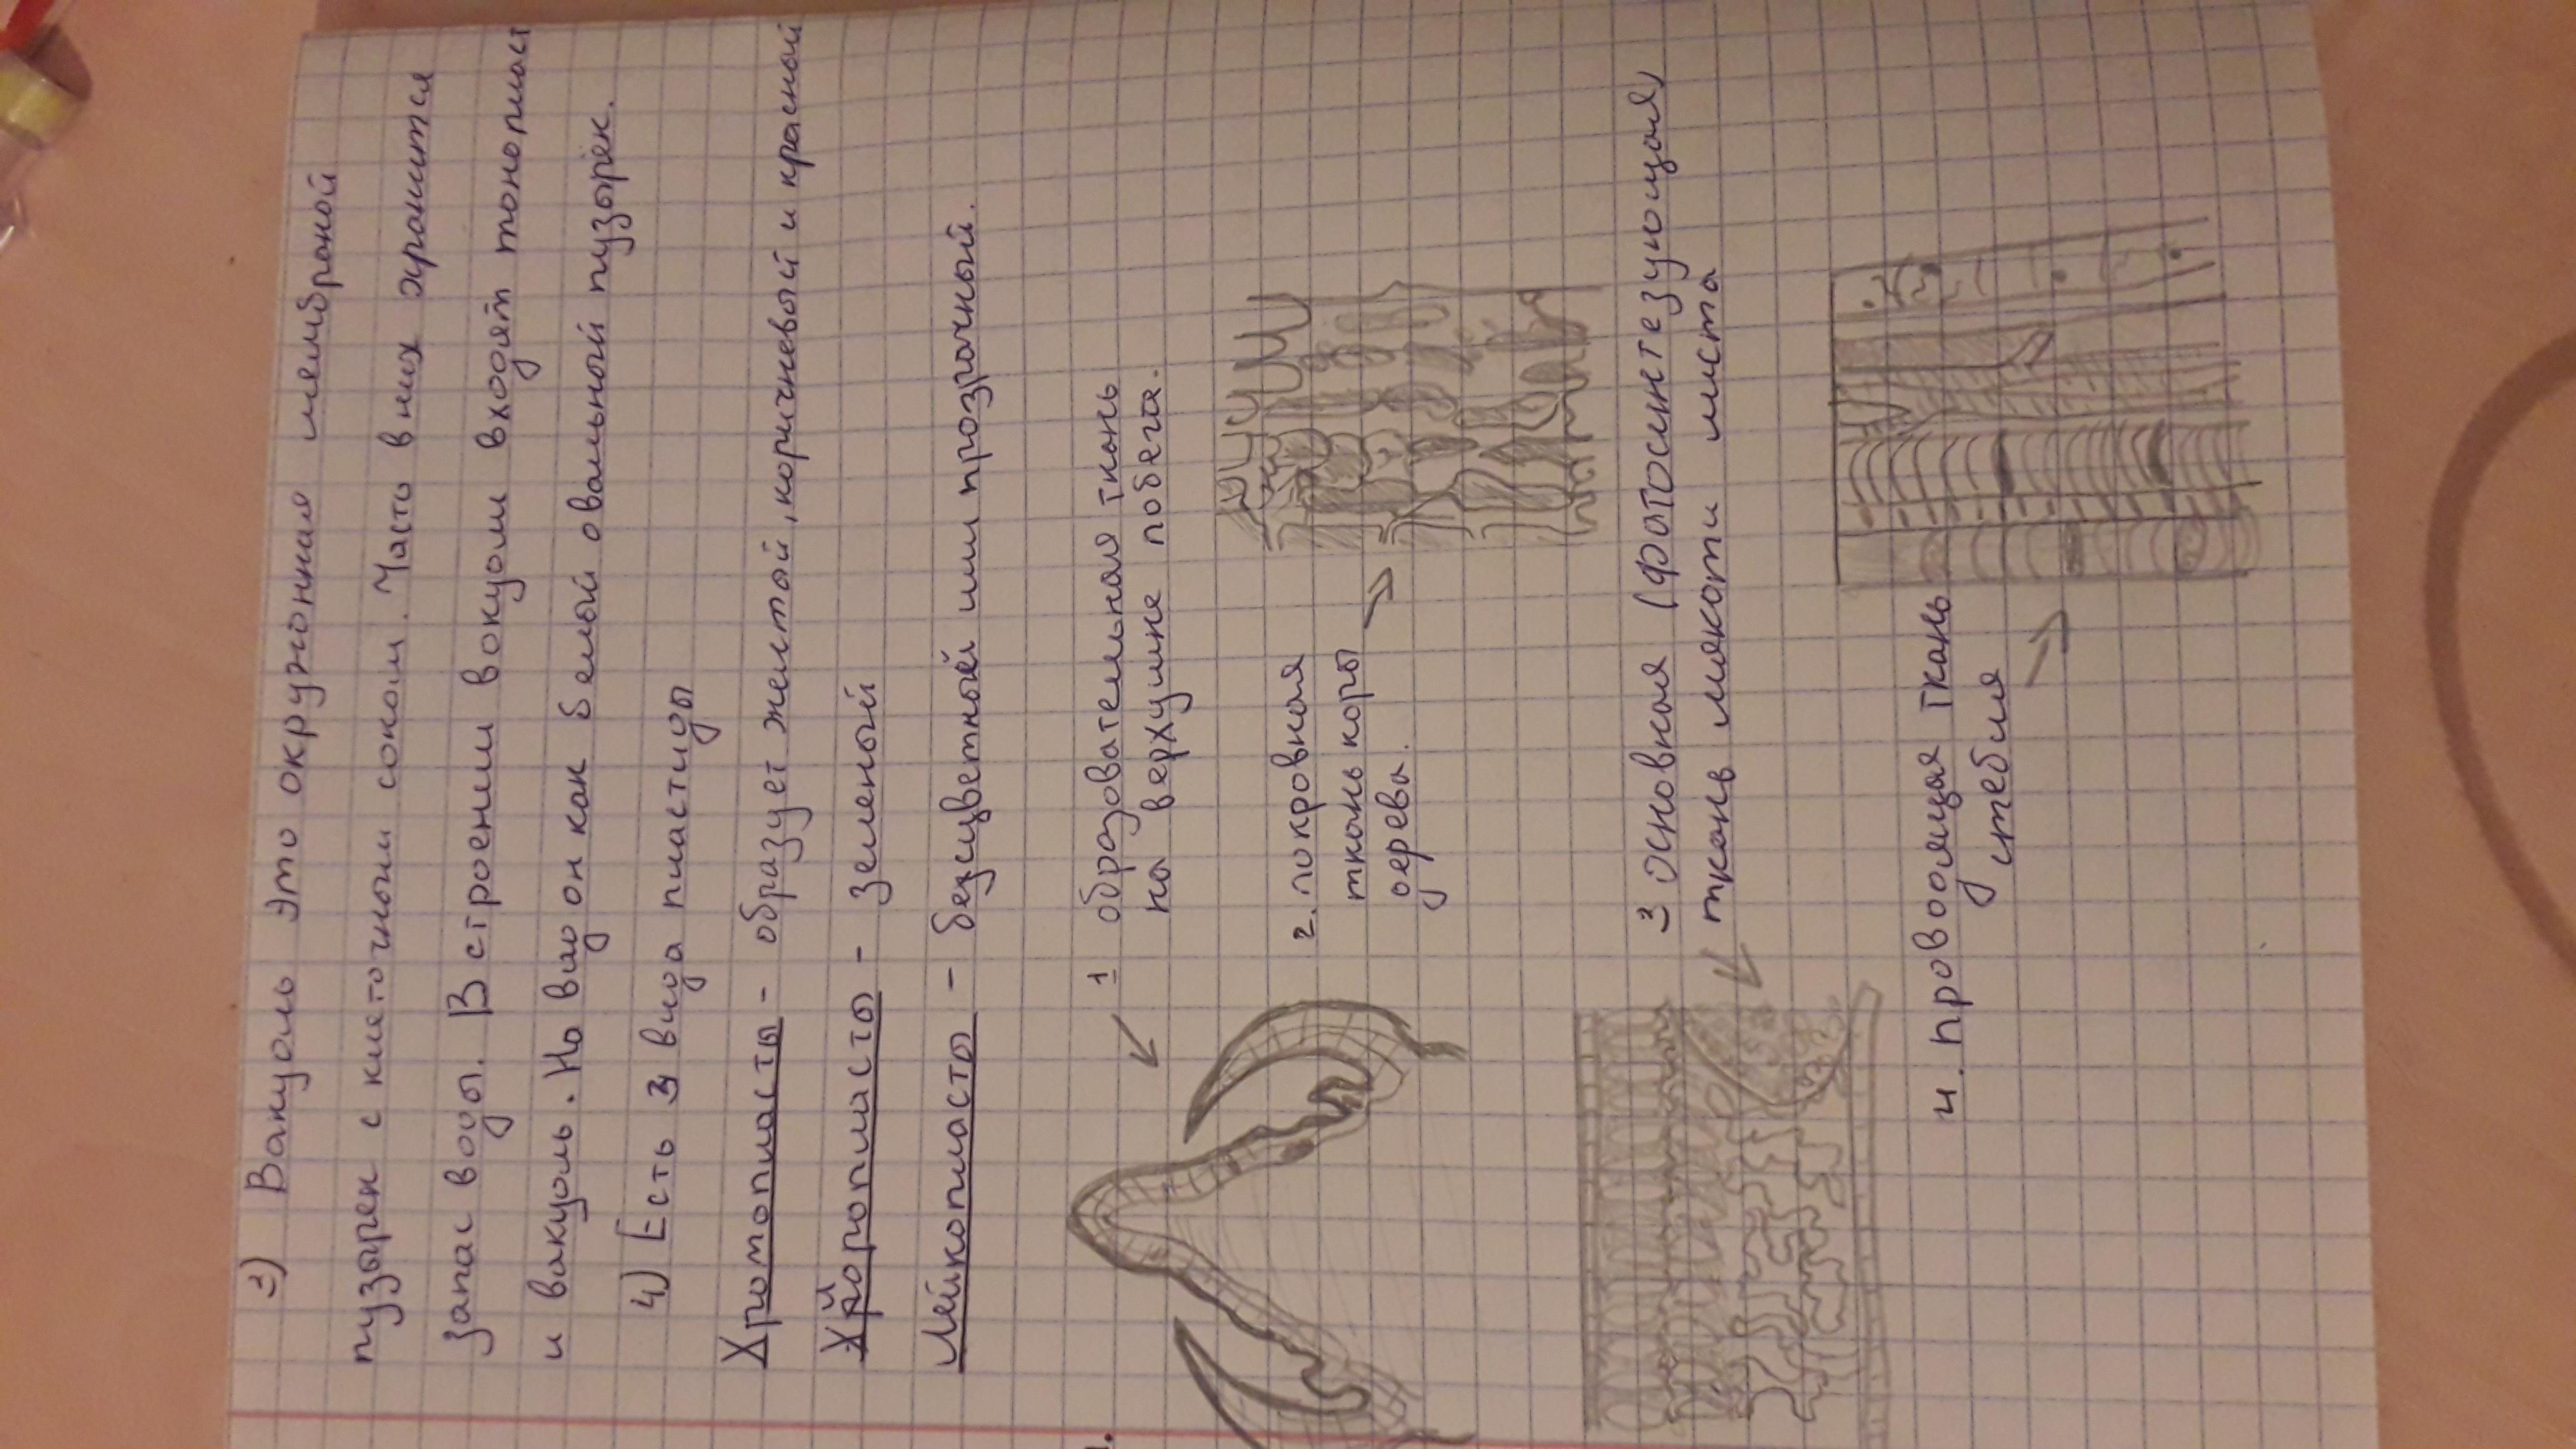 3) Вакуоль это окружонная мембраной
пузырек с клеточным соком. Часто в них хранится
запас воды. В строении вокуоли входят тонопласт
и вакуоль. На вид он как белый овальный пузырёк.
4) Есть 3 вида пластиды
Хромопласты - образует желтый, коричневый и красный
Хлоропласты - зеленый
Лейкопласты - безцветный или прозрачный.
1 образовательная ткань
на верхушине побега.
2. покровная
ткань коры
дерева.
3 основная (фотосинтезующая)
ткань мякоти листа
4. проводящая ткань
стебля